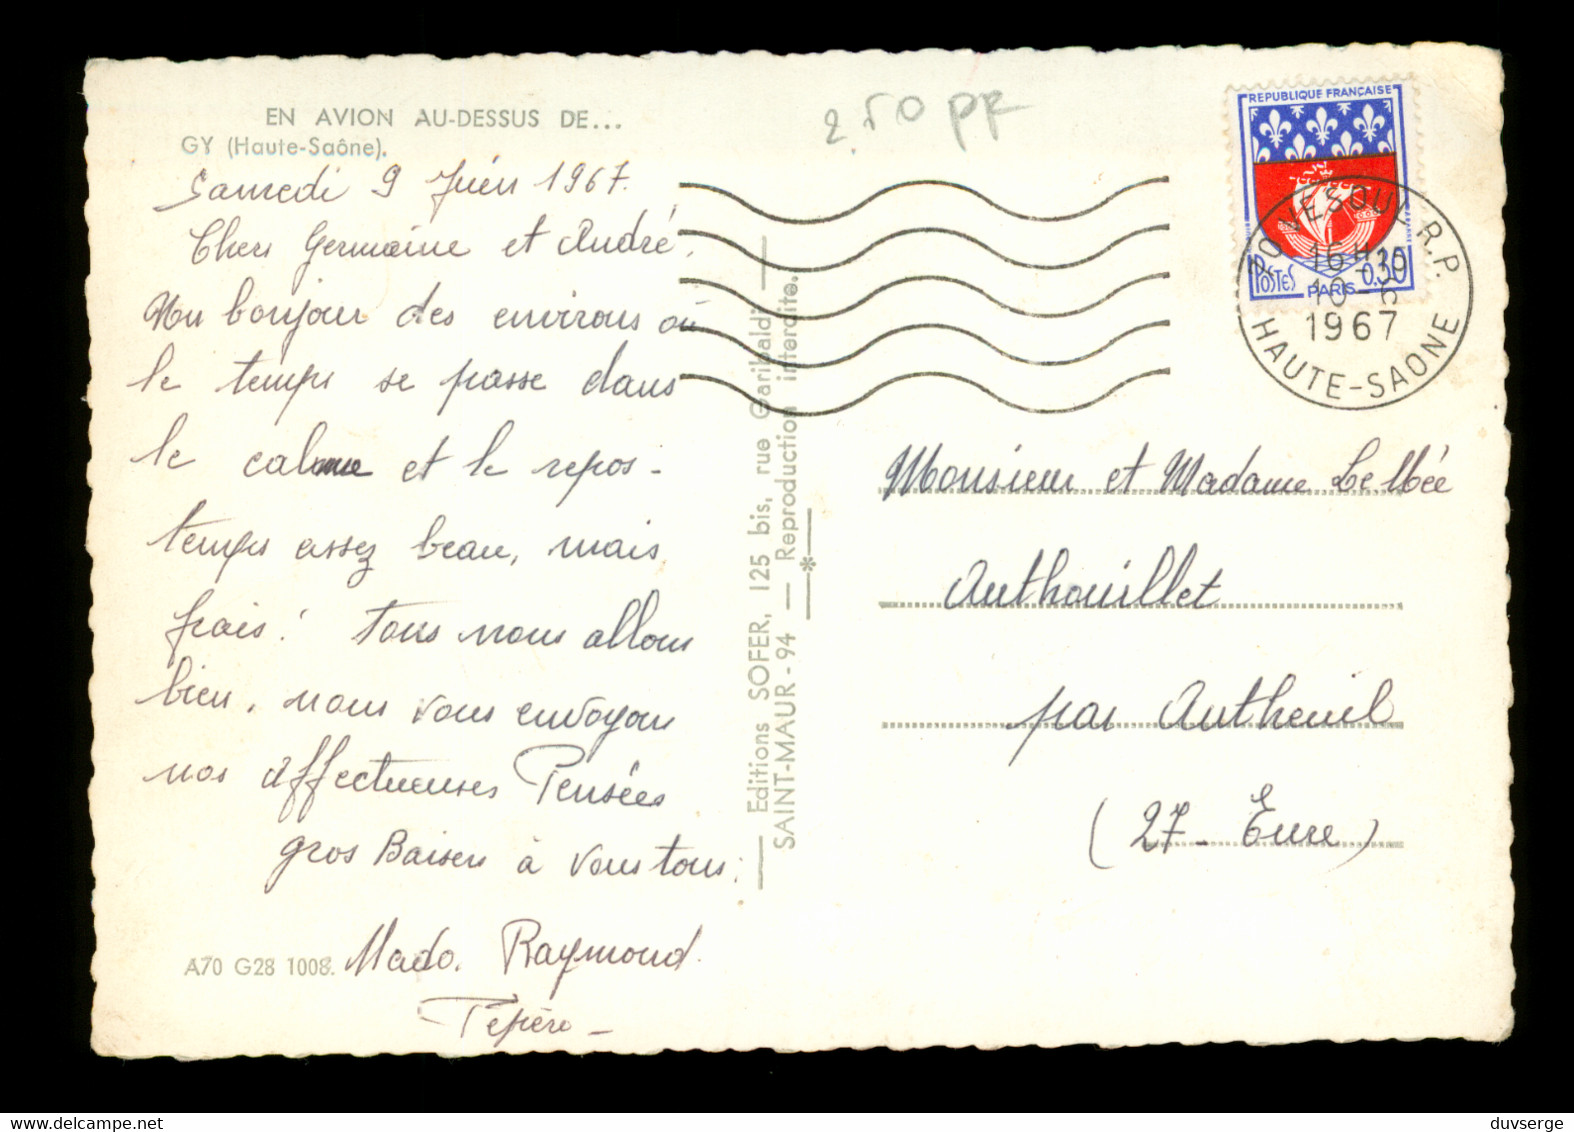 EN AVION AU-DESSUS DE...
GY (Haute-Saône).
2.50 pf
Samedi 9 Juin 1967.
Chers Germaine et André.
Un bonjour des environs où
le temps se passe dans
le calme et le repos -
temps assez beau, mais
frais ! Tous nous allons
bien, nous vous envoyons
nos affectueuses Pensées
gros Baisers à vous tous.
Mado. Raymond.
Pépère -
A70 G28 1008.
Editions SOFER, 125 bis, rue Garibaldi
SAINT-MAUR - 94 — Reproduction interdite.
REPUBLIQUE FRANÇAISE
POSTES
PARIS
0,30
70 VESOUL R.P.
16 H 30
10 - 6
1967
HAUTE-SAONE
Monsieur et Madame Le Mée
Authouillet
par Autheuil
(27 - Eure)
duvserge